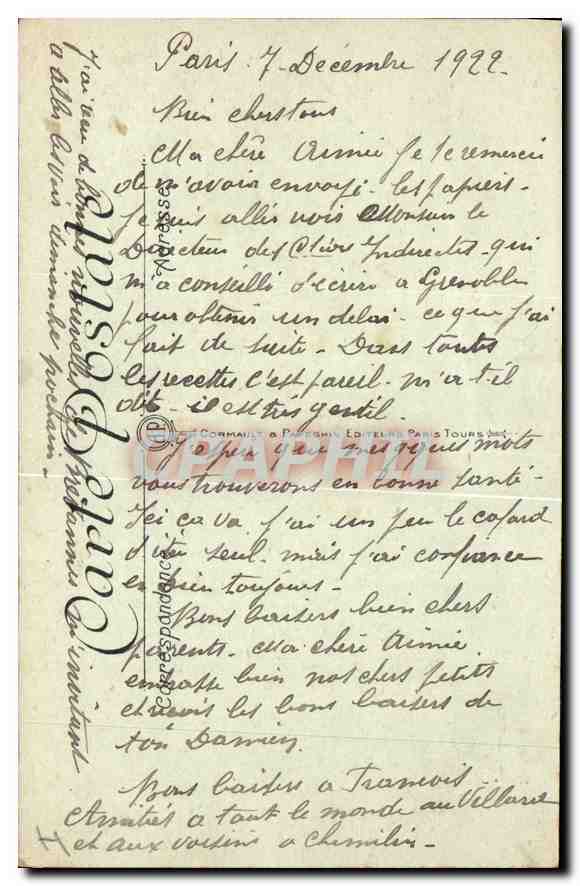 Paris 7 Décembre 1922.
Bien chers tous
Ma chère Aimée Je te remercie
de m'avoir envoyé les papiers -
Je suis allé voir Monsieur le
Directeur des Indirectes - qui
m'a conseillé d'écrire a Grenoble
pour obtenir un délai ce que j'ai
fait de suite - Dans toutes
les recettes c'est pareil - m'a t-il
dit - il est très gentil.
J'espère que mes qques mots
vous trouverons en bonne santé -
Ici ca va j'ai un peu le cafard
d'être seul - mais j'ai confiance
en bien toujours -
Bons baisers bien chers
parents - Ma chère Aimée
embrasse bien nos chers petits
et reçois les bons baisers de
ton Damien
Bons baisers a François
Amitiés a tout le monde au Villard
et aux voisins a Chimilin -
J'ai reçu de bonnes nouvelles de m'invitant
a aller les voir dimanche prochain -
Carte Postale
Correspondance
Adresse
CP
Cormault & Papeghin Editeurs Paris Tours
PAPHIL
H